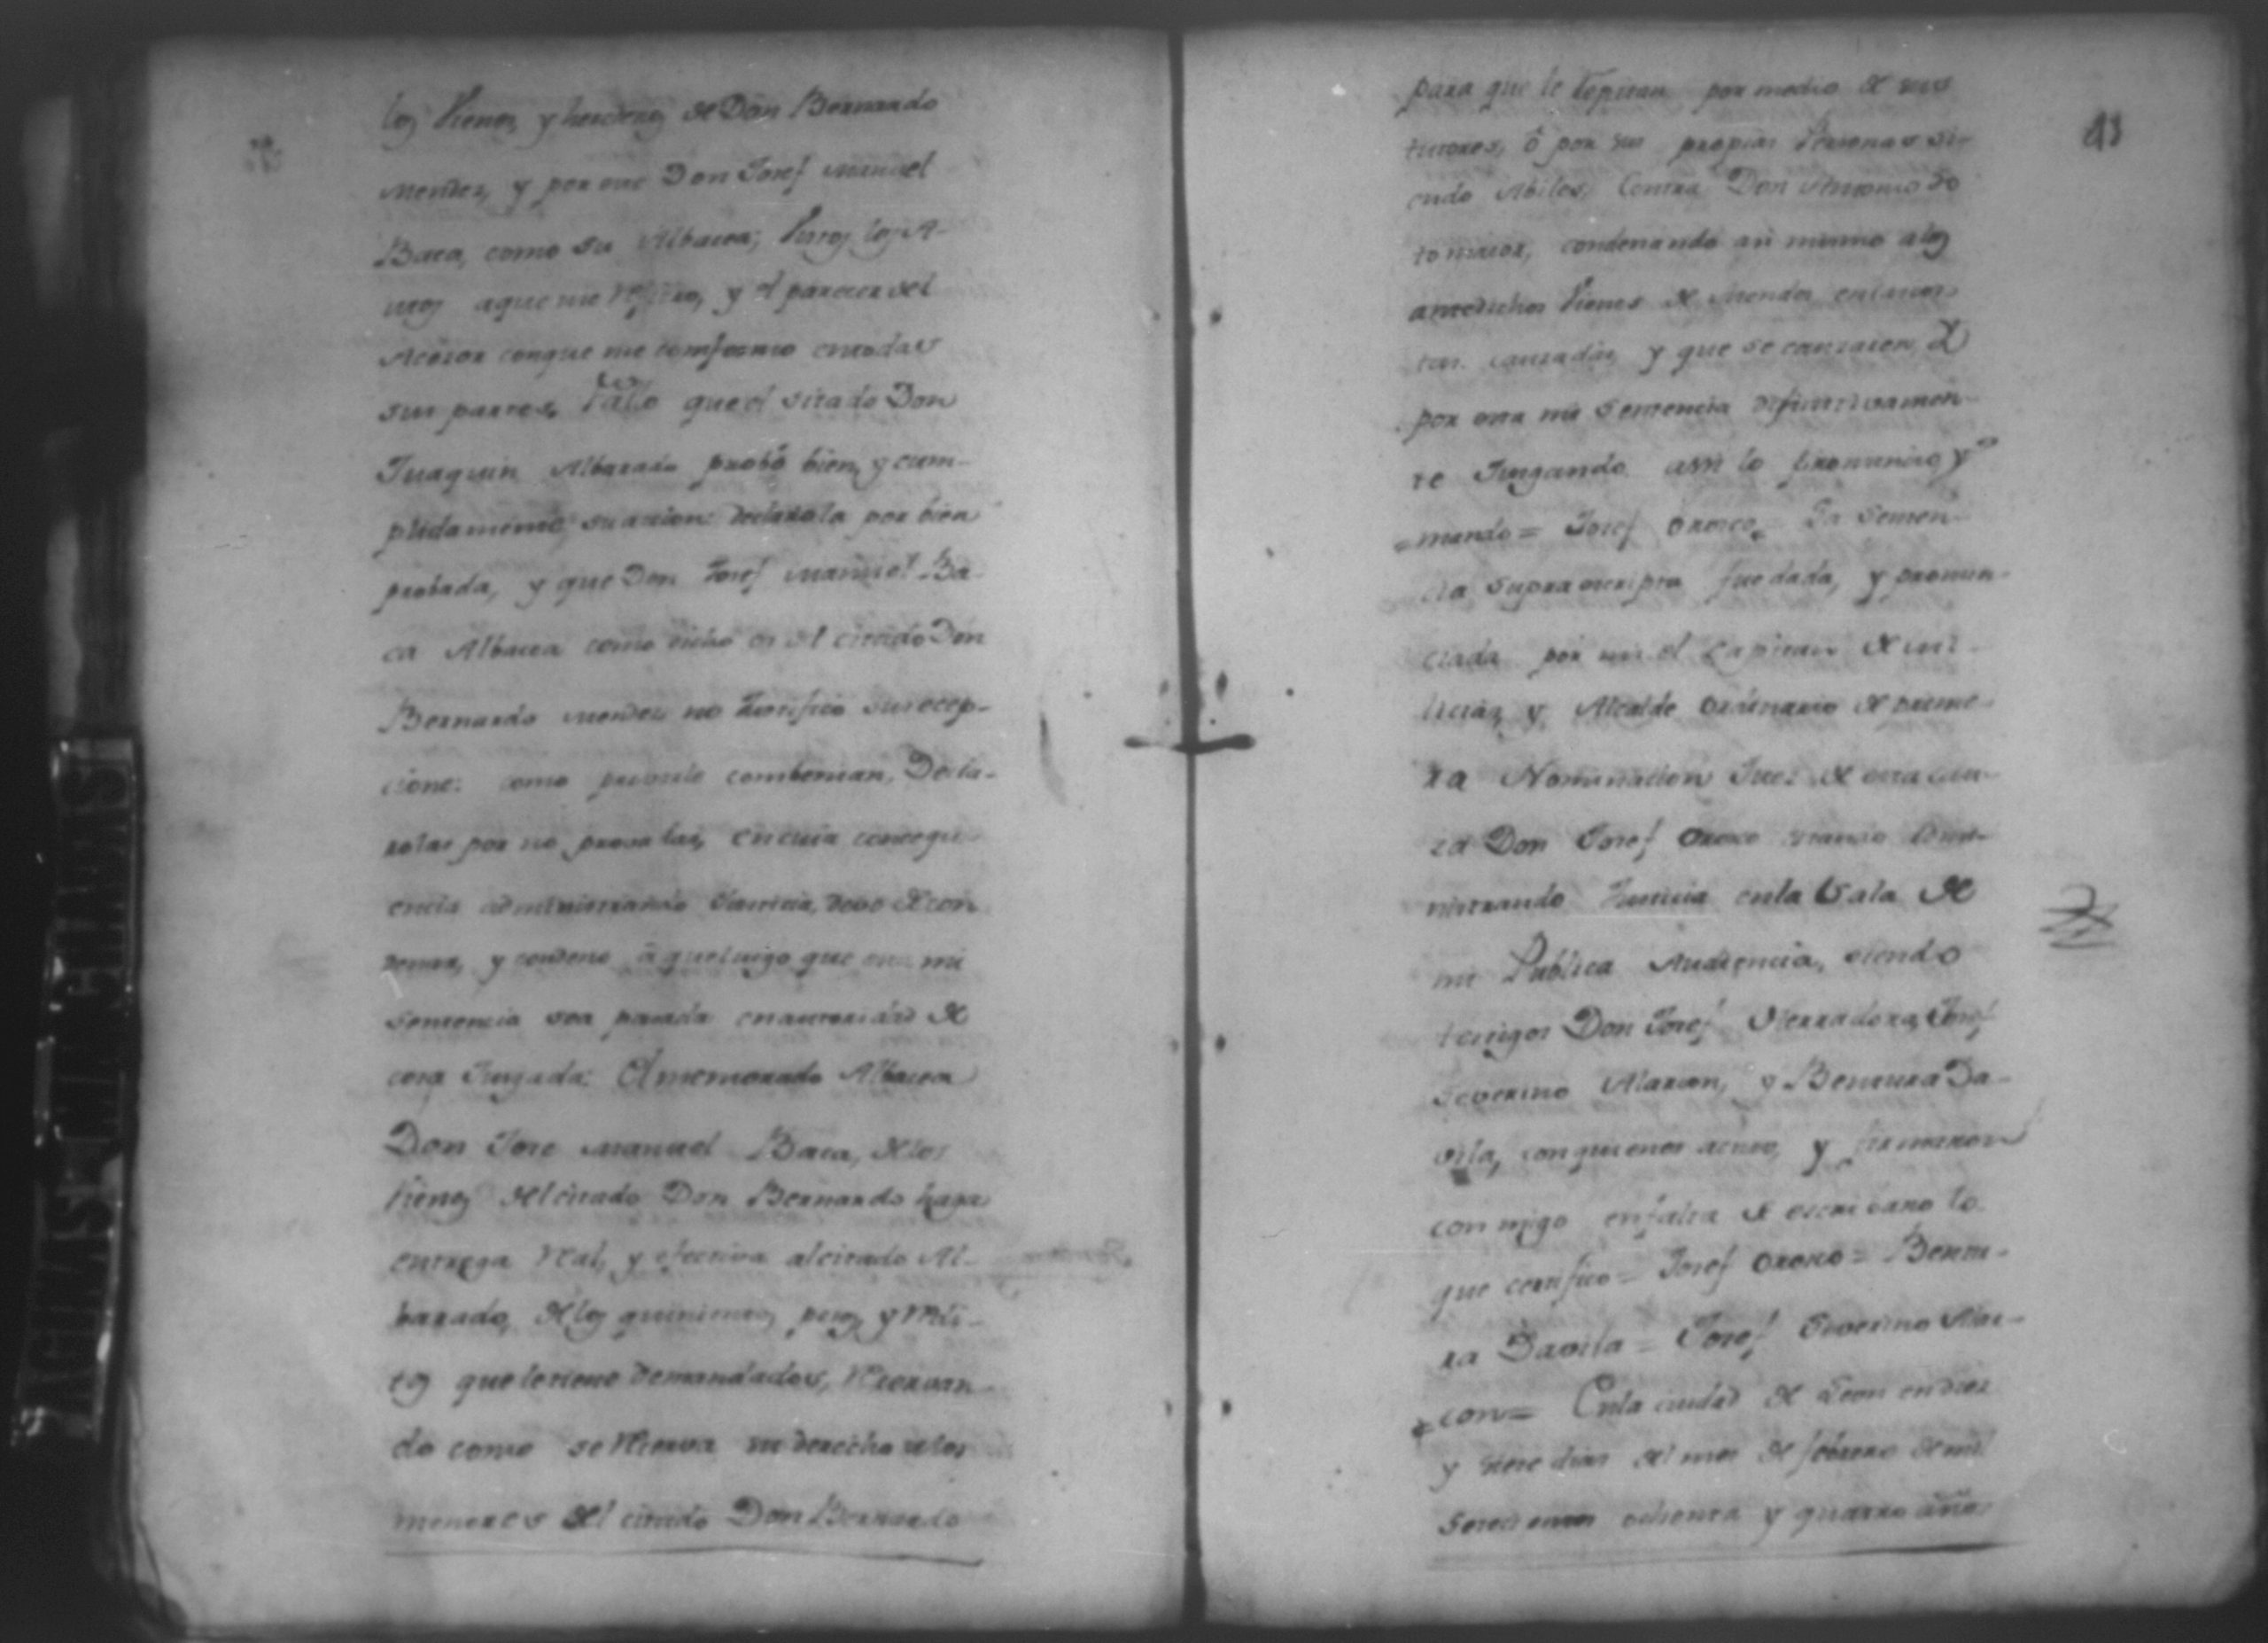 los Vienes y herederos de Don Bernardo
Mendez, y por ene Don Josef Manuel
Baca, como su Albacea; Vistos los A-
utos aque me refiero, y el parecer del
Acesor conque me comformo entodas
sus partes, Fallo que el sitado Don
Juaquin Albarado probó bien, y cum-
plidamente su accion: declarola por bien
probada, y que Don Josef Manuel Ba-
ca Albacea como dicho es del citado Don
Bernardo Mendez no Justifico sus ecep-
ciones como provarle combenian, Decla-
rolas por no provadas, encuia concequ-
encia administrando Justicia, devo de con
denar, y condeno á queluego que esta mi
Sentencia sea pasada enautoridad de
cosa Jusgada: El memorado Albacea
Don Jose Manuel Baca, de los
Vienes del citado Don Bernardo haga
entrega Real, y efectiva alcitado Al-
barado, de los quinientos pesos y Rédi-
tos que le tiene demandados, Reservan-
do como se Reserva su derecho a los
menores del citado Don Bernardo
13
para que le Repitan por medio de sus
tutores, ô por sus propias Personas si-
endo Abiles, Contra Don Antonio So
tomaior, condenando asi mismo alos
antedichos Vienes de Mendez enlas cos-
tas causadas, y que se causaren, Y
por esta mi Sentencia difinitivamen-
te Jusgando assi lo pronuncio y
mando = Josef Orosco = La Senten-
cia supra escripta fue dada, y pronun-
ciada por mi el Capitan de mi-
licias y Alcalde Ordinario de prime-
ra Nominacion Juez de esta cau-
za Don Josef Orosco estando admi-
nistrando Justicia enla Sala de
mi Publica Audiencia, siendo
testigos Don Josef Herradora, Josef
Severino Alarcon, y Bentura Da-
vila, con quienes actuo, y firmaron
con migo enfalta de escribano lo
que certifico = Josef Orosco = Bentu-
ra Davila = Josef Severino Alar-
con = Enla ciudad de Leon en diez
y siete dias del mes de febrero de mil
setecientos ochenta y quatro años